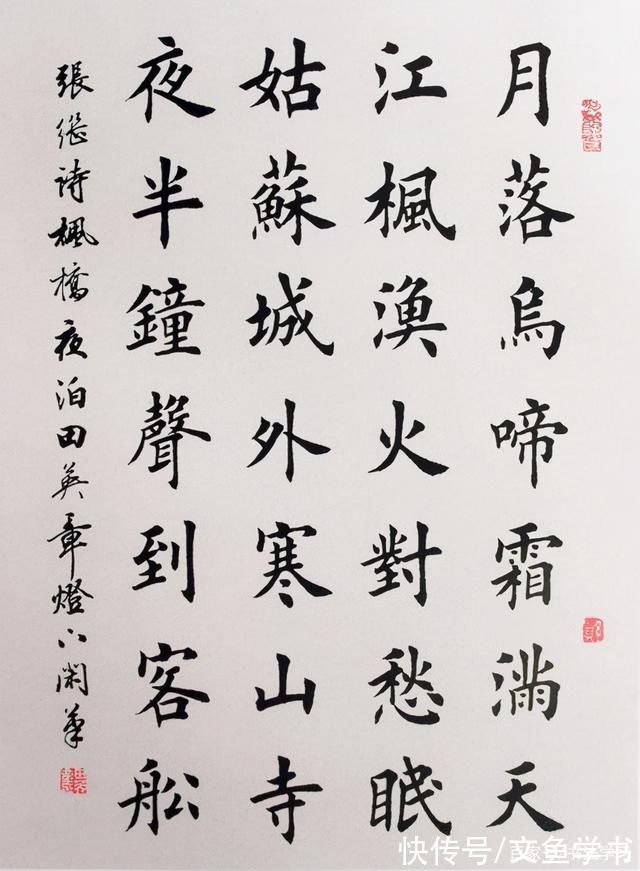 月落烏啼霜滿天
江楓漁火對愁眠
姑蘇城外寒山寺
夜半鐘聲到客船
張繼詩楓橋夜泊田英章燈下閑筆
快传号/文鱼学书